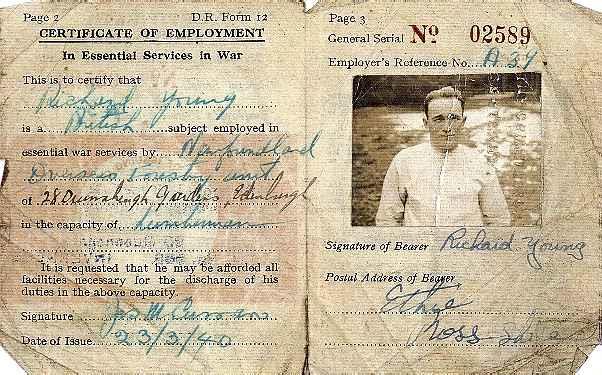 Page 2 D.R. Form 12
CERTIFICATE OF EMPLOYMENT
In Essential Services in War
This is to certify that
Richard Young
is a British subject employed in
essential war services by Newfoundland
Overseas Forestry Unit
of 28 Gardens, Edinburgh
in the capacity of Lumberman
It is requested that he may be afforded all
facilities necessary for the discharge of his
duties in the above capacity.
Signature
Date of Issue 23/3/40
Page 3
General Serial No 02589
Employer's Reference No. A 34
Signature of Bearer Richard Young
Postal Address of Bearer
Ethie
Ross-Shire